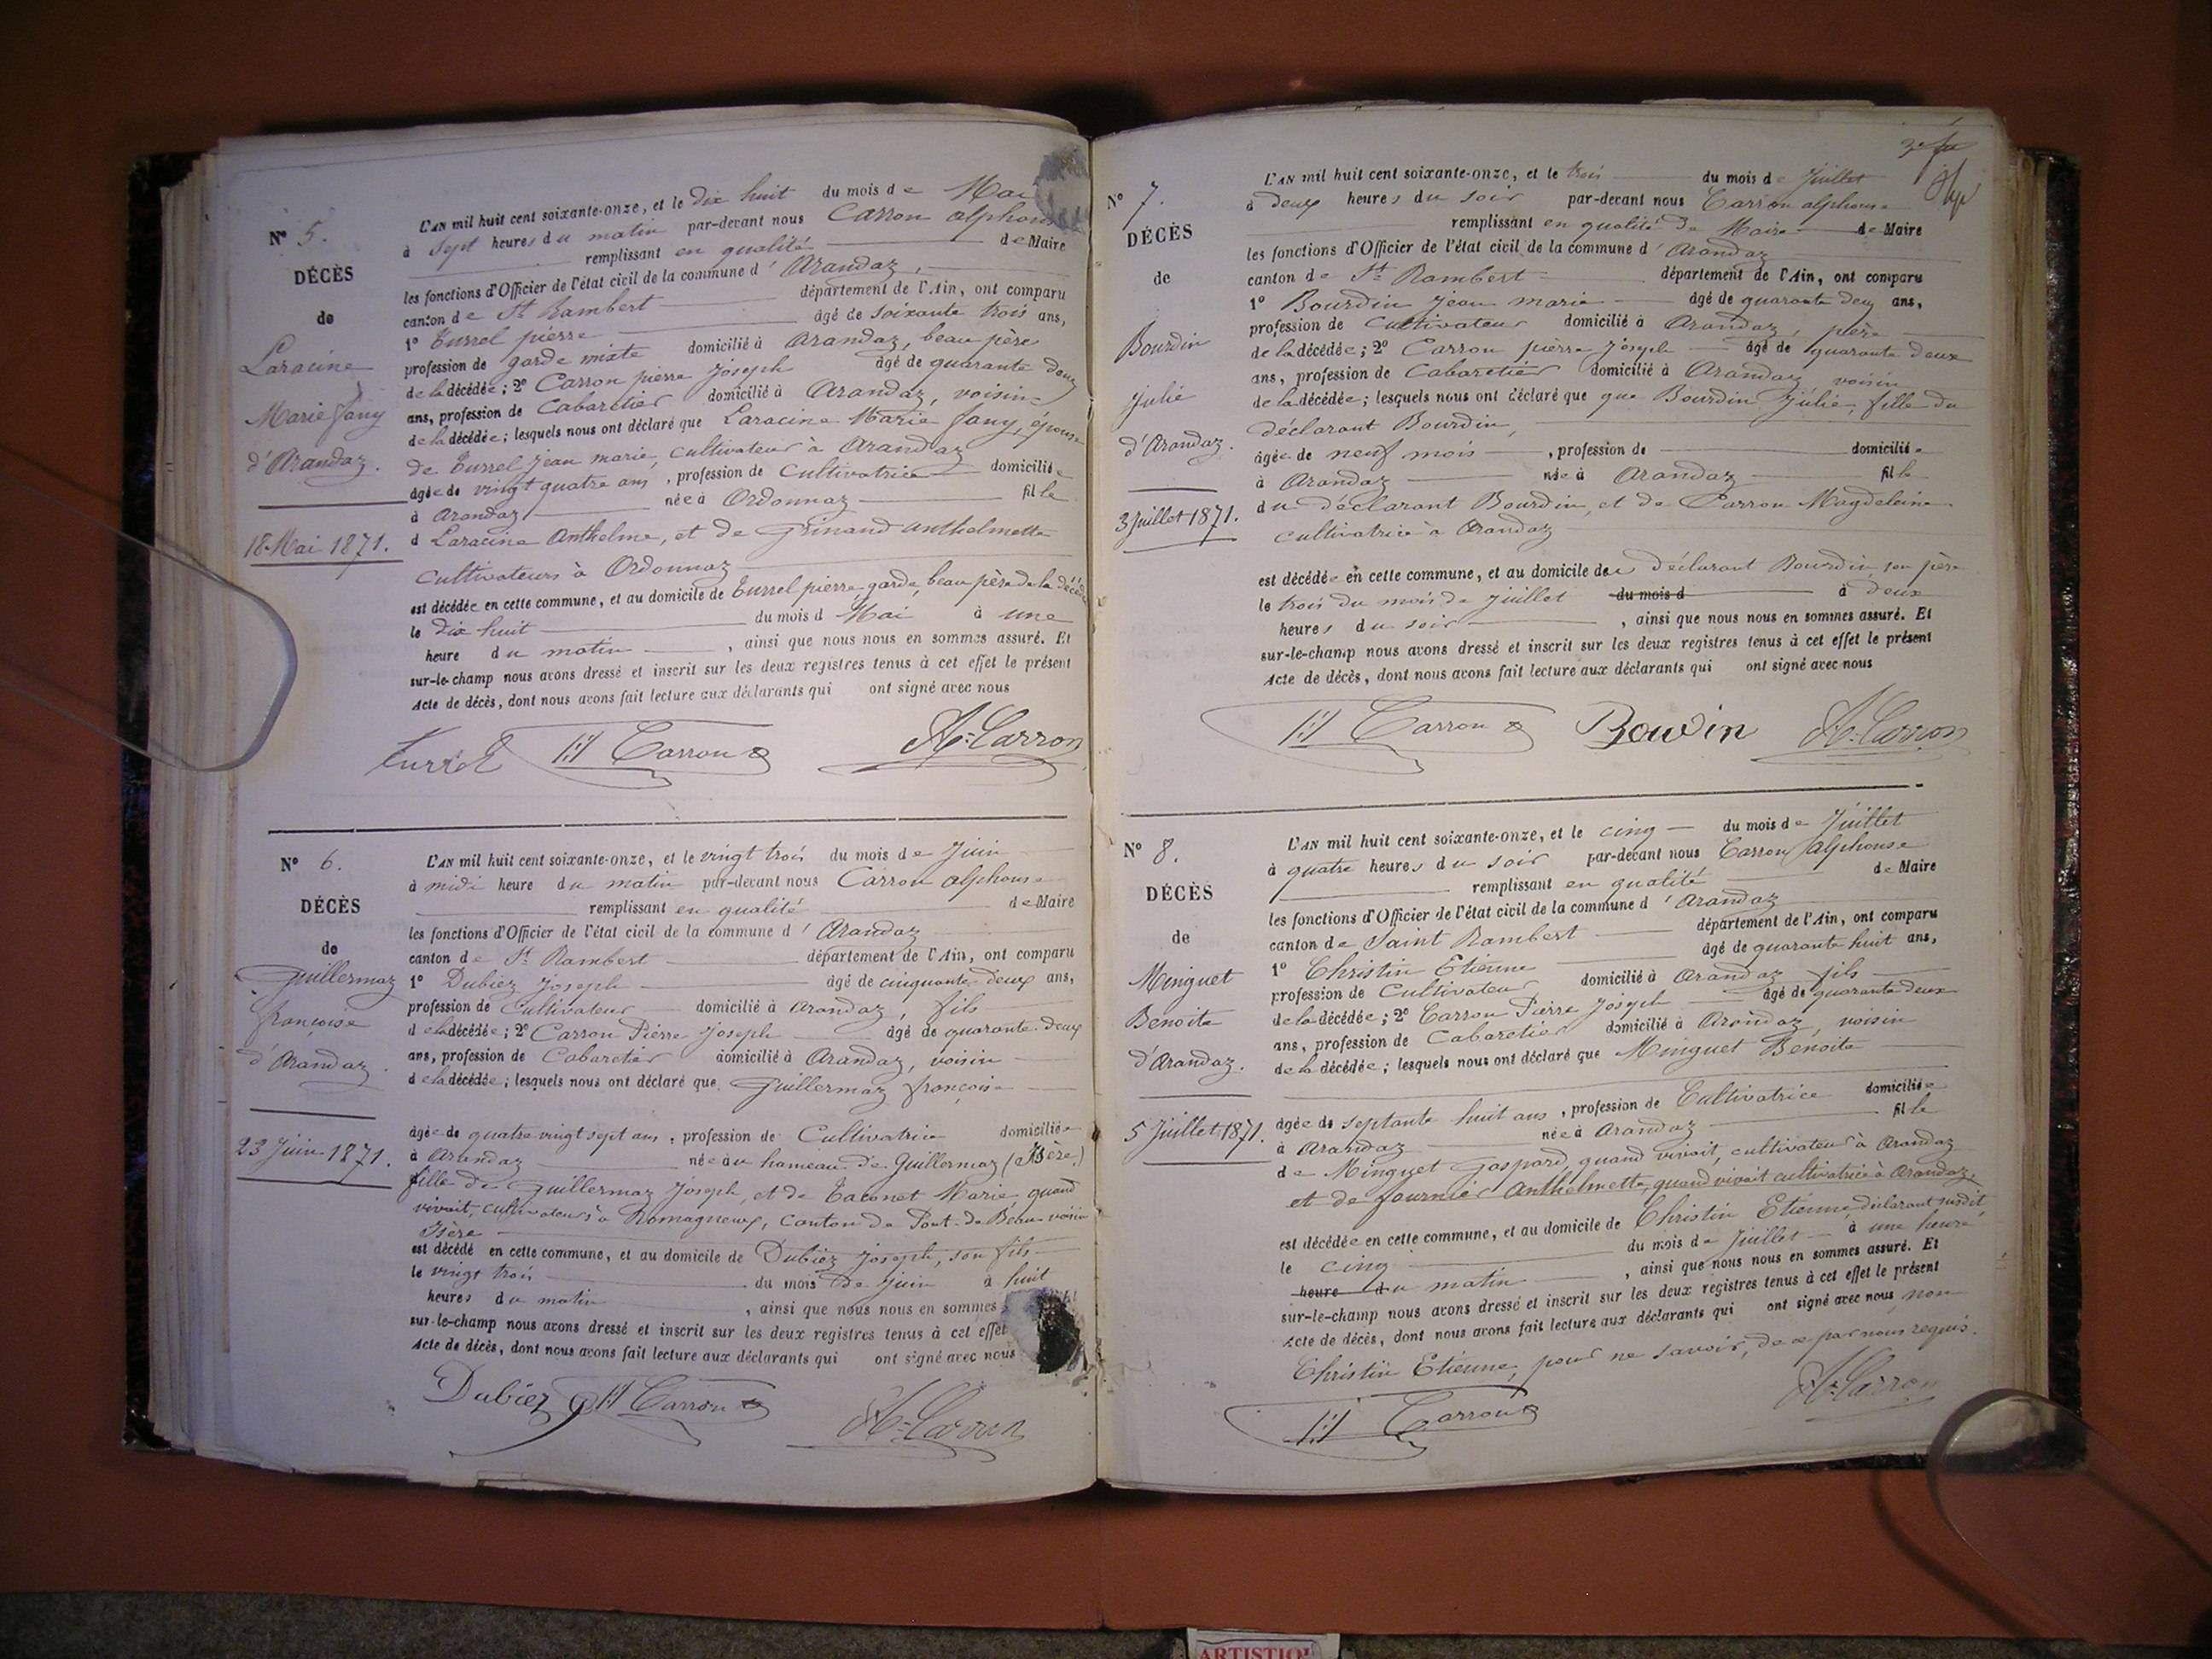 N° 5.
DÉCÈS
de
Laracine
Marie Fany
d'Arandaz.
18 Mai 1871.
L'AN mil huit cent soixante-onze, et le dix huit du mois de Mai
à sept heures du matin par-devant nous Carron alphonse
remplissant en qualité de Maire
les fonctions d'Officier de l'état civil de la commune d'Arandaz,
canton de St Rambert département de l'Ain, ont comparu
1° Turrel pierre âgé de soixante trois ans,
profession de garde mixte domicilié à Arandaz, beau père
de la décédée; 2° Carron pierre Joseph âgé de quarante deux
ans, profession de Cabaretier domicilié à Arandaz, voisin
de la décédée; lesquels nous ont déclaré que Laracine Marie Fany, épouse
de Turrel Jean marie, cultivateur à Arandaz
âgée de vingt quatre ans, profession de Cultivatrice domiciliée
à Arandaz née à Ordonnaz fille
d Laracine Anthelme, et de Grinand Anthelmette
Cultivateurs à Ordonnaz
est décédée en cette commune, et au domicile de Turrel pierre garde, beau père de la décédée
le dix huit du mois d Mai à une
heure du matin, ainsi que nous nous en sommes assuré. Et
sur-le-champ nous avons dressé et inscrit sur les deux registres tenus à cet effet le présent
Acte de décès, dont nous avons fait lecture aux déclarants qui ont signé avec nous
Turrel Carron A. Carron
N° 6.
DÉCÈS
de
Guillermaz
françoise
d'Arandaz.
23 Juin 1871.
L'AN mil huit cent soixante-onze, et le vingt trois du mois de Juin
à midi heure du matin par-devant nous Carron alphonse
remplissant en qualité de Maire
les fonctions d'Officier de l'état civil de la commune d'Arandaz
canton de St Rambert département de l'Ain, ont comparu
1° Dubiez Joseph âgé de cinquante deux ans,
profession de Cultivateur domicilié à Arandaz, fils
de la décédée; 2° Carron Pierre Joseph âgé de quarante deux
ans, profession de Cabaretier domicilié à Arandaz, voisin
de la décédée; lesquels nous ont déclaré que Guillermaz françoise
âgée de quatre vingt sept ans, profession de Cultivatrice domiciliée
à Arandaz née au hameau de Guillermaz (Isère)
fille de Guillermaz Joseph, et de Taconet Marie, quand
vivait, cultivateurs à Romagneux, Canton de Pont-de-Beau-voisin
Isère
est décédé en cette commune, et au domicile de Dubiez Joseph, son fils
le vingt trois du mois de Juin à huit
heures du matin, ainsi que nous nous en sommes
sur-le-champ nous avons dressé et inscrit sur les deux registres tenus à cet effet
Acte de décès, dont nous avons fait lecture aux déclarants qui ont signé avec nous
Dubiez Carron A. Carron
N° 7.
DÉCÈS
de
Bourdin
Julie
d'Arandaz.
3 Juillet 1871.
L'AN mil huit cent soixante-onze, et le trois du mois de Juillet
à deux heures du soir par-devant nous Carron alphonse
remplissant en qualité de Maire de Maire
les fonctions d'Officier de l'état civil de la commune d'Arandaz
canton de St Rambert département de l'Ain, ont comparu
1° Bourdin Jean marie âgé de quarante deux ans,
profession de Cultivateur domicilié à Arandaz, père
de la décédée; 2° Carron pierre Joseph âgé de quarante deux
ans, profession de Cabaretier domicilié à Arandaz voisin
de la décédée; lesquels nous ont déclaré que que Bourdin Julie, fille du
déclarant Bourdin,
âgée de neuf mois, profession de domiciliée
à Arandaz née à Arandaz fille
du déclarant Bourdin, et de Carron Magdeleine
cultivatrice à Arandaz
est décédée en cette commune, et au domicile de déclarant Bourdin son père
le trois du mois de Juillet du mois d à deux
heures du soir, ainsi que nous nous en sommes assuré. Et
sur-le-champ nous avons dressé et inscrit sur les deux registres tenus à cet effet le présent
Acte de décès, dont nous avons fait lecture aux déclarants qui ont signé avec nous
Carron Bourdin A. Carron
N° 8.
DÉCÈS
de
Minguet
Benoite
d'Arandaz.
5 Juillet 1871.
L'AN mil huit cent soixante-onze, et le cinq du mois de Juillet
à quatre heures du soir par-devant nous Carron Alphonse
remplissant en qualité de Maire
les fonctions d'Officier de l'état civil de la commune d'Arandaz
canton de Saint Rambert département de l'Ain, ont comparu
1° Christin Etienne âgé de quarante huit ans,
profession de Cultivateur domicilié à Arandaz fils
de la décédée; 2° Carron Pierre Joseph âgé de quarante deux
ans, profession de Cabaretier domicilié à Arandaz, voisin
de la décédée; lesquels nous ont déclaré que Minguet Benoite
âgée de septante huit ans, profession de Cultivatrice domiciliée
à Arandaz née à Arandaz fille
de Minguet Gaspard, quand vivait, cultivateur à Arandaz
et de fournier Anthelmette, quand vivait cultivatrice à Arandaz,
est décédée en cette commune, et au domicile de Christin Etienne, déclarant susdit
le cinq du mois de Juillet à une heure
heure du matin, ainsi que nous nous en sommes assuré. Et
sur-le-champ nous avons dressé et inscrit sur les deux registres tenus à cet effet le présent
Acte de décès, dont nous avons fait lecture aux déclarants qui ont signé avec nous non
Christin Etienne, pour ne savoir, de ce par nous requis.
Carron A. Carron
ARTISTIQU